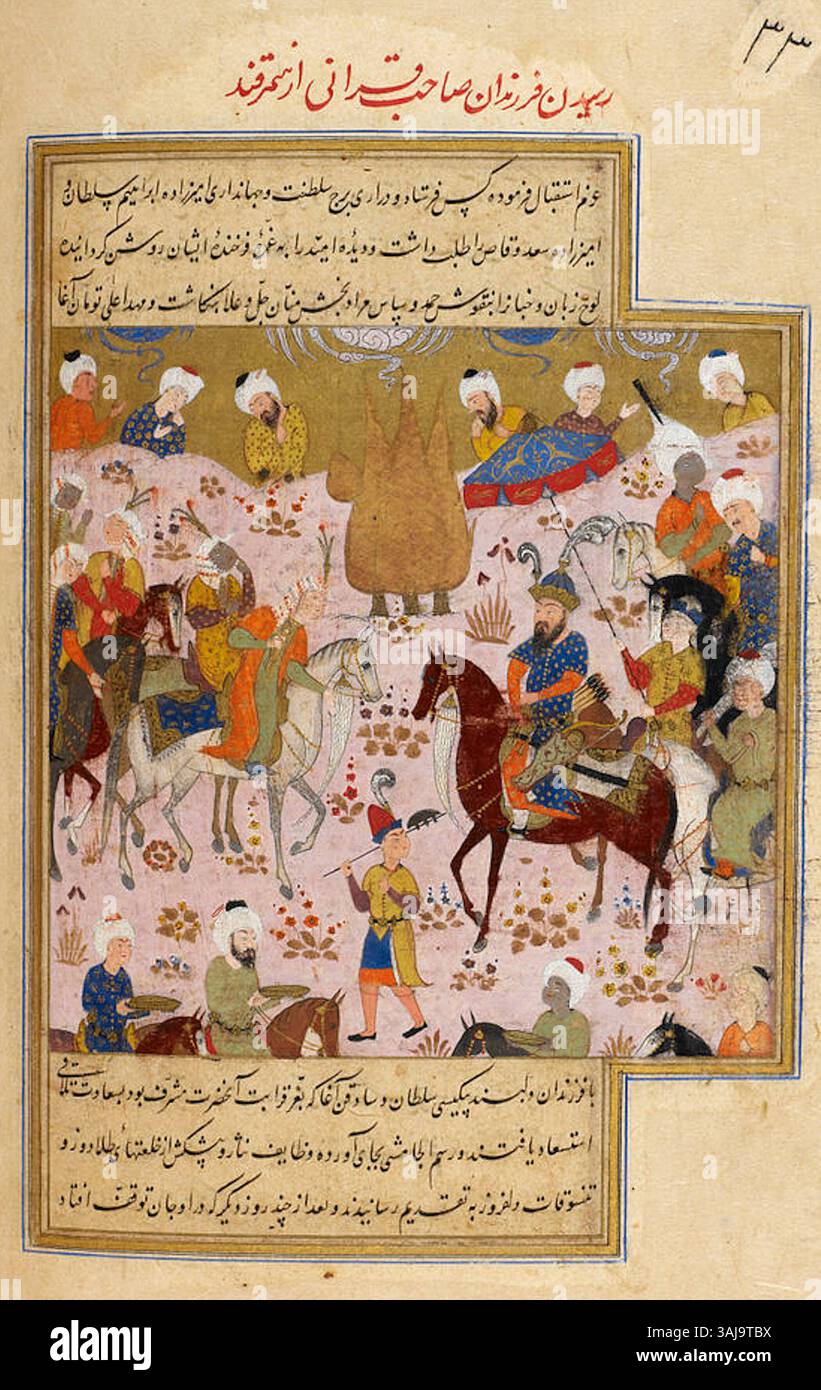 ۳۳
رسیدن فرزندان صاحب قرانی از سمرقند
عزم استقبال فرموده کس فرستاد و دراری برج سلطنت و جهانداری امیرزاده ابراهیم سلطان و
امیرزاده سعد وقاص را طلب داشت و دیده امید را به غرّهٔ فرخندهٔ ایشان روشن گردانیده
لوح زبان و جنان را بنقوش حمد و سپاس مراد بخش منّان جلّ و علا بنگاشت و مهد اعلی تومان آغا
با فرزندان دلبند بیکیسی سلطان و سادقن آغا که بعّز قرابت آنحضرت مشرّف بود بسعادت تلاقی
استسعاد یافتند و رسم الجامشی بجای آورده وظایف نثار و پیشکش از خلعتهای طلادوز و
تنسوقات دلفروز به تقدیم رسانیدند و بعد از چند روز دیگر که در اوجان توقف افتاد
alamy
alamy
Image ID: 3AJ9TBX
www.alamy.com